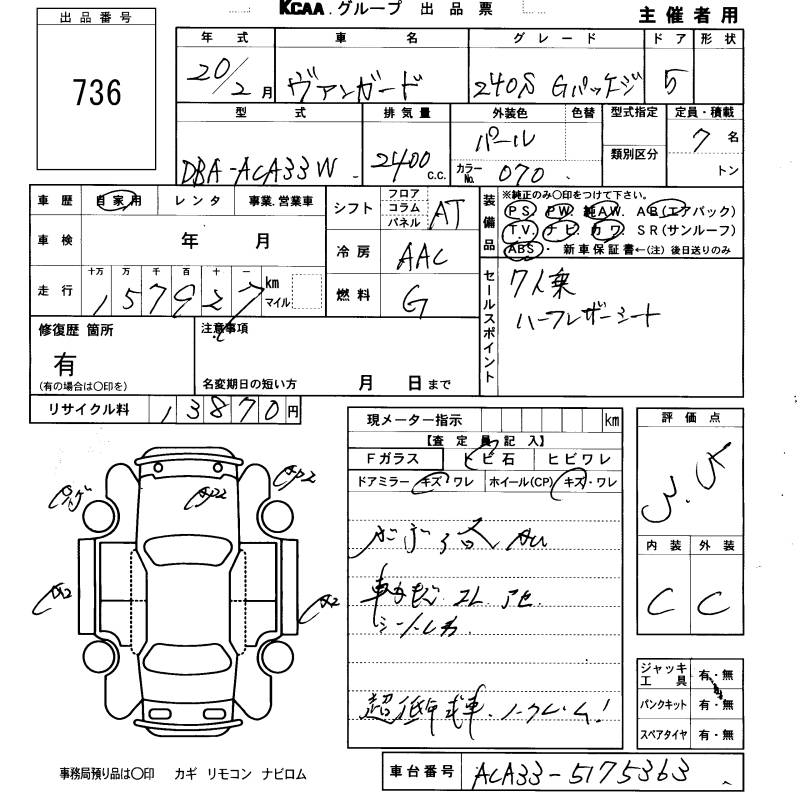 KCAA.グループ 出品票
主催者用
出品番号
736
年式 車名 グレード ドア 形状
20/2月 ヴァンガード 240S Gパッケージ 5
型式 排気量 外装色 色替 型式指定 定員・積載
DBA-ACA33W 2400 c.c. パール 7名
類別区分
カラーNo. 070 トン
車歴 自家用 レンタ 事業.営業車
シフト フロア コラム パネル AT
車検 年 月
冷房 AAC
走行 十万 万 千 百 十 一 km マイル
157927
燃料 G
装備品
※純正のみ〇印をつけて下さい。
PS PW. 純AW. AB(エアバック)
T.V. ナビ カワ SR(サンルーフ)
ABS・ 新車保証書←(注)後日送りのみ
セールスポイント
7人乗
ハーフレザーシート
修復歴 箇所
有
(有の場合は〇印を)
注意事項
名変期日の短い方 月 日まで
リサイクル料 13870円
現メーター指示 km
【査定員記入】
Fガラス ヒビ石 ヒビワレ
ドアミラー キズ・ワレ ホイール(CP) キズ・ワレ
評価点
3.5
内装 外装
C C
A2
A2
シート
超低年式車.ノークレーム!
ジャッキ工具 有・無
パンクキット 有・無
スペアタイヤ 有・無
事務局預り品は〇印 カギ リモコン ナビロム
車台番号 ACA33-5175363